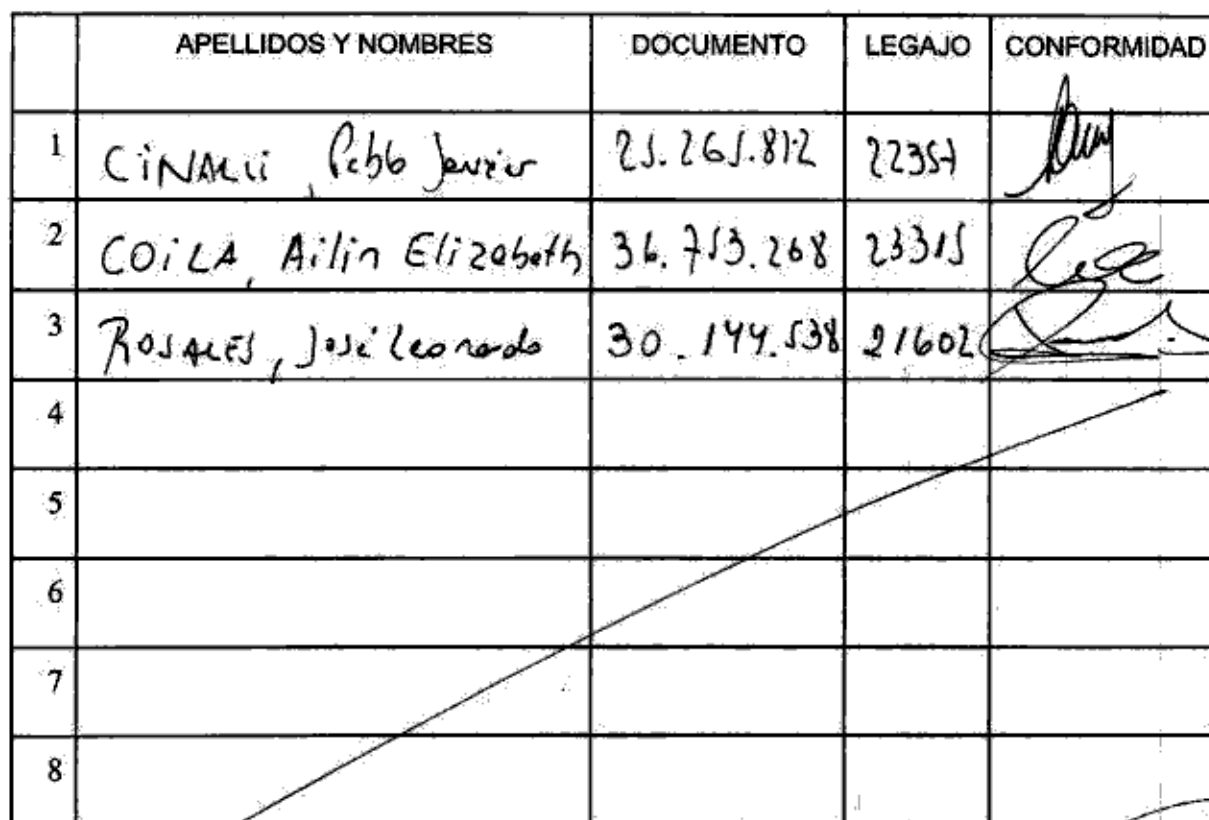 APELLIDOS Y NOMBRES DOCUMENTO LEGAJO CONFORMIDAD
1 CiNALLi, Pablo Javier 25.265.812 22357
2 COiLA, Ailin Elizabeth 36.753.268 23315
3 ROSALES, José Leonardo 30.144.538 21602
4
5
6
7
8